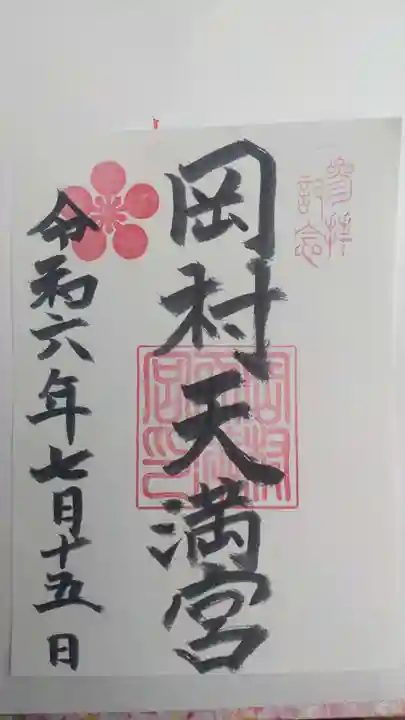 参拝
記念
岡村天満宮
令和六年七月十五日